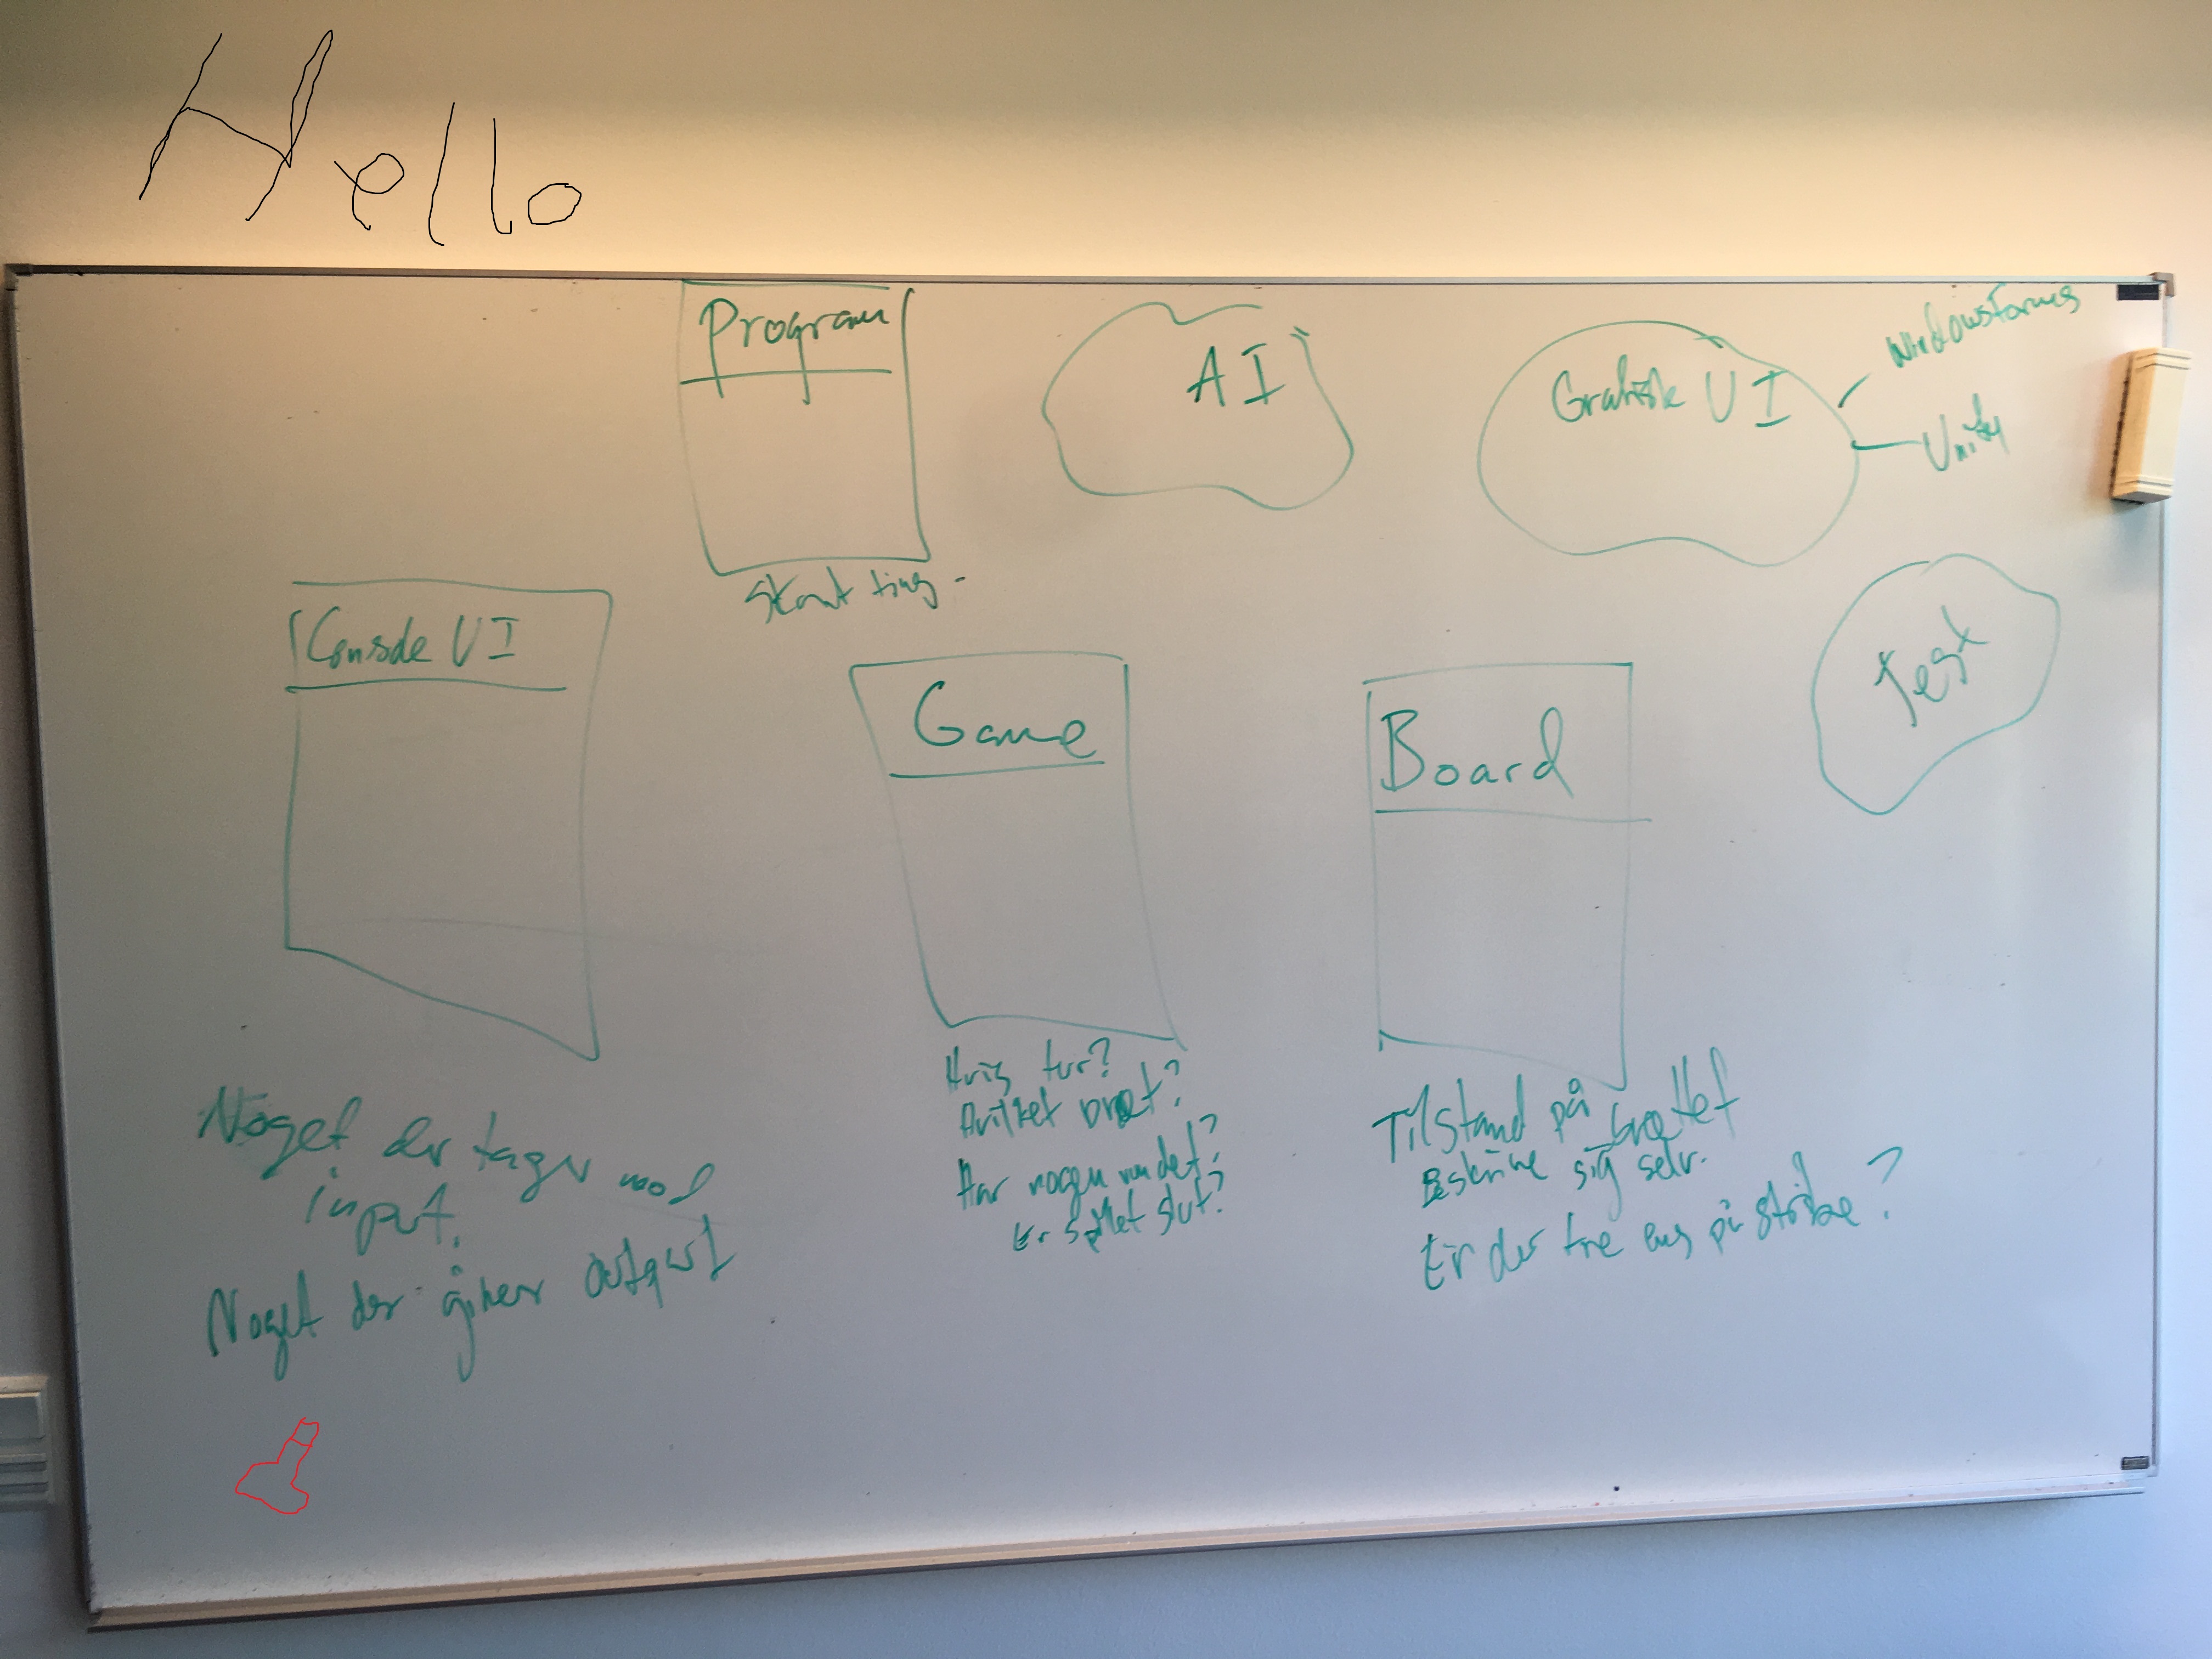 Hello
Program
Start ting.
AI
Grafisk UI
Windowsforms
Unity
Console UI
Game
Board
Test
Noget der tager mod
input.
Noget der giver output
Hvis tur?
Hvilket bræt?
Har nogen vundet?
Er spillet slut?
Tilstand på brættet
Beskrive sig selv.
Er der tre ens på stribe?